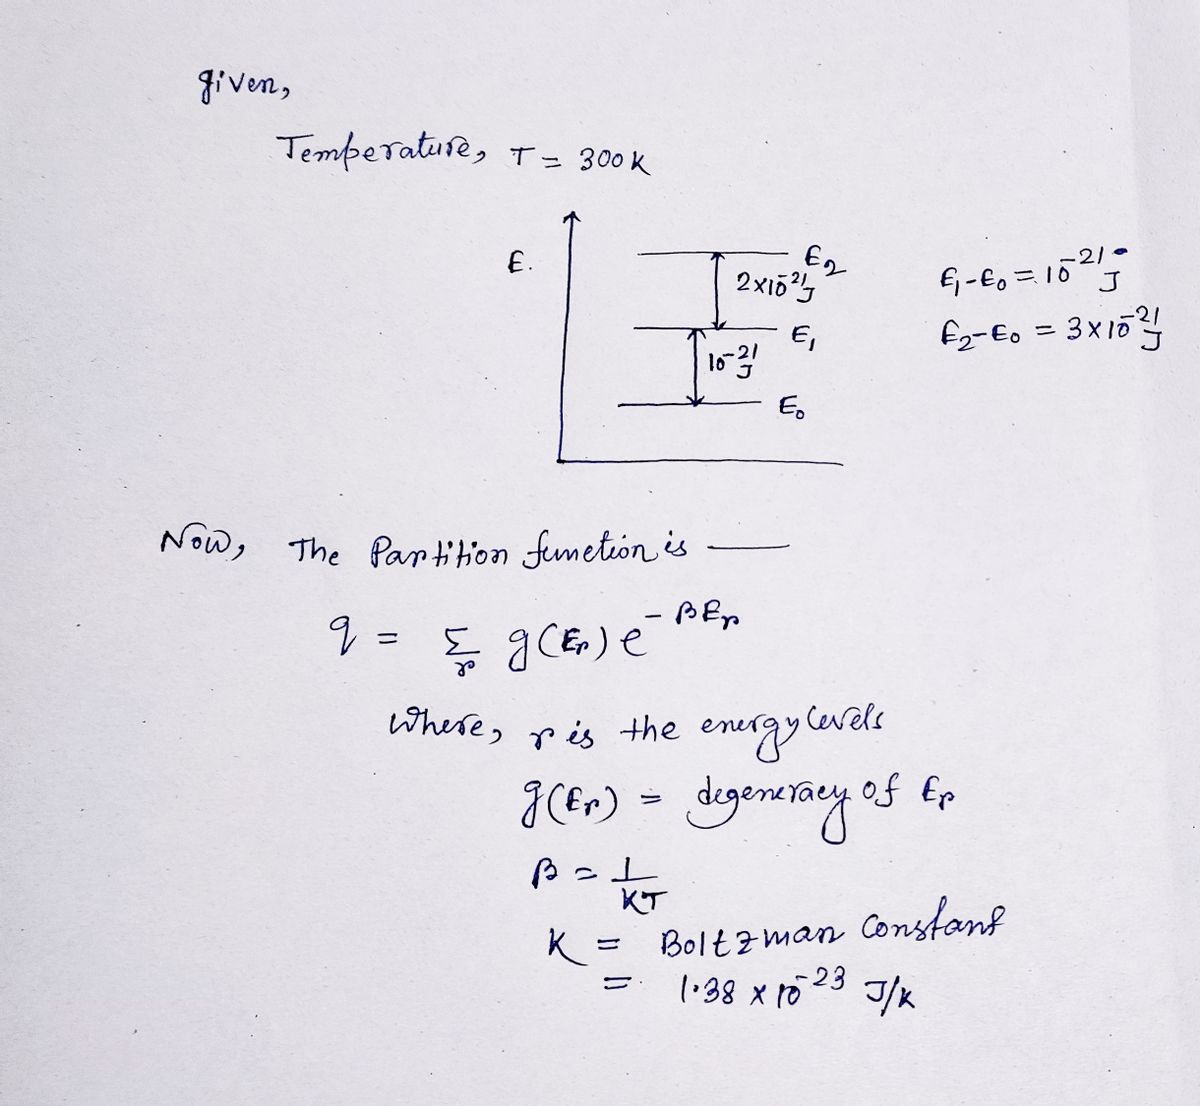 given,
Temperature, T = 300K
E.
E₂
2×10⁻²¹J
E₁
10⁻²¹J
E₀
E₁-E₀ = 10⁻²¹J
E₂-E₀ = 3×10⁻²¹J
Now, The Partition function is —
q = Σr g(Er) e^-βEr
Where, r is the energy levels
g(Er) = degeneracy of Er
β = 1/KT
K = Boltzman Constant
= 1.38 × 10⁻²³ J/K